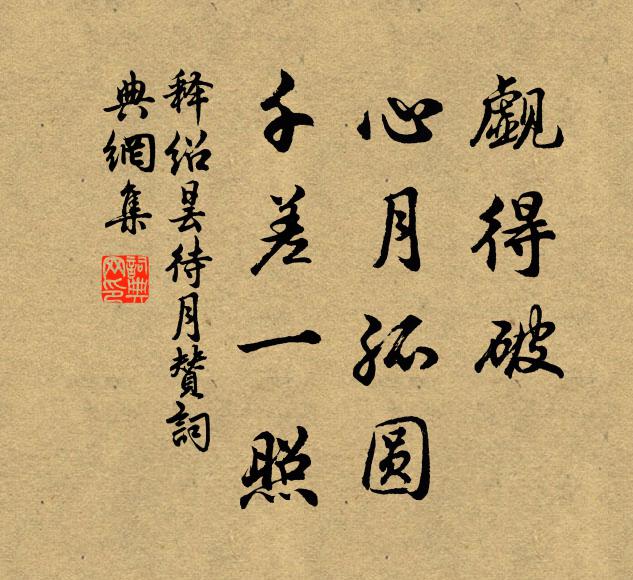 觑得破
心月孤圆
千差一照
释绍昙待月赞詞
典網集
詞典网印